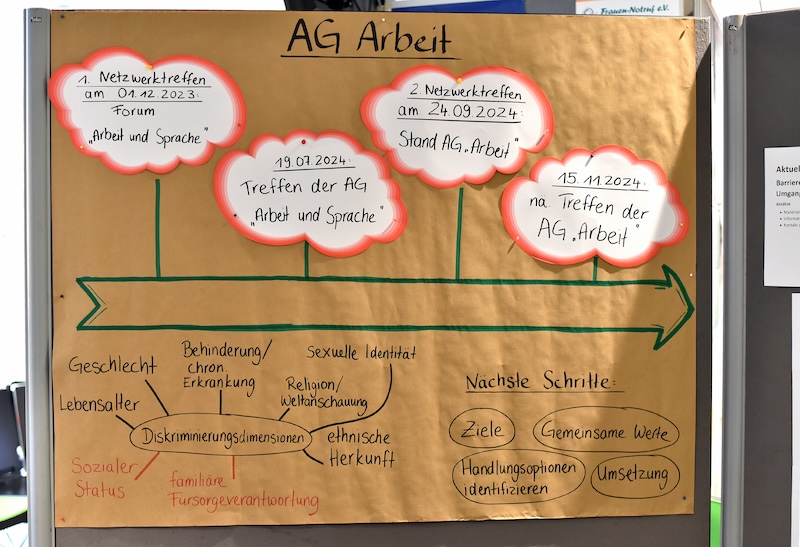 Frauen-Notruf e.V.
AG Arbeit
1. Netzwerktreffen
am 01.12.2023:
Forum
„Arbeit und Sprache"
19.07.2024:
Treffen der AG
„Arbeit und Sprache"
2. Netzwerktreffen
am 24.09.2024:
Stand AG „Arbeit"
15.11.2024:
nä. Treffen der
AG „Arbeit"
Geschlecht
Behinderung/
chron.
Erkrankung
Sexuelle Identität
Lebensalter
Religion/
Weltanschauung
Diskriminierungsdimensionen
ethnische
Herkunft
Sozialer
Status
familiäre
Fürsorgeverantwortung
Nächste Schritte:
Ziele
Gemeinsame Werte
Handlungsoptionen
identifizieren
Umsetzung
Aktuel
Barriere
Umgang